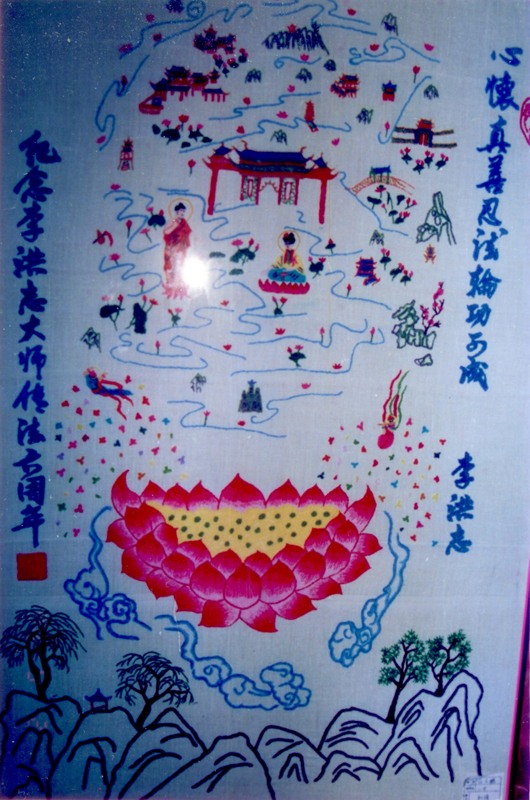 心怀真善忍法轮功可成
李洪志
纪念李洪志大师传法六周年